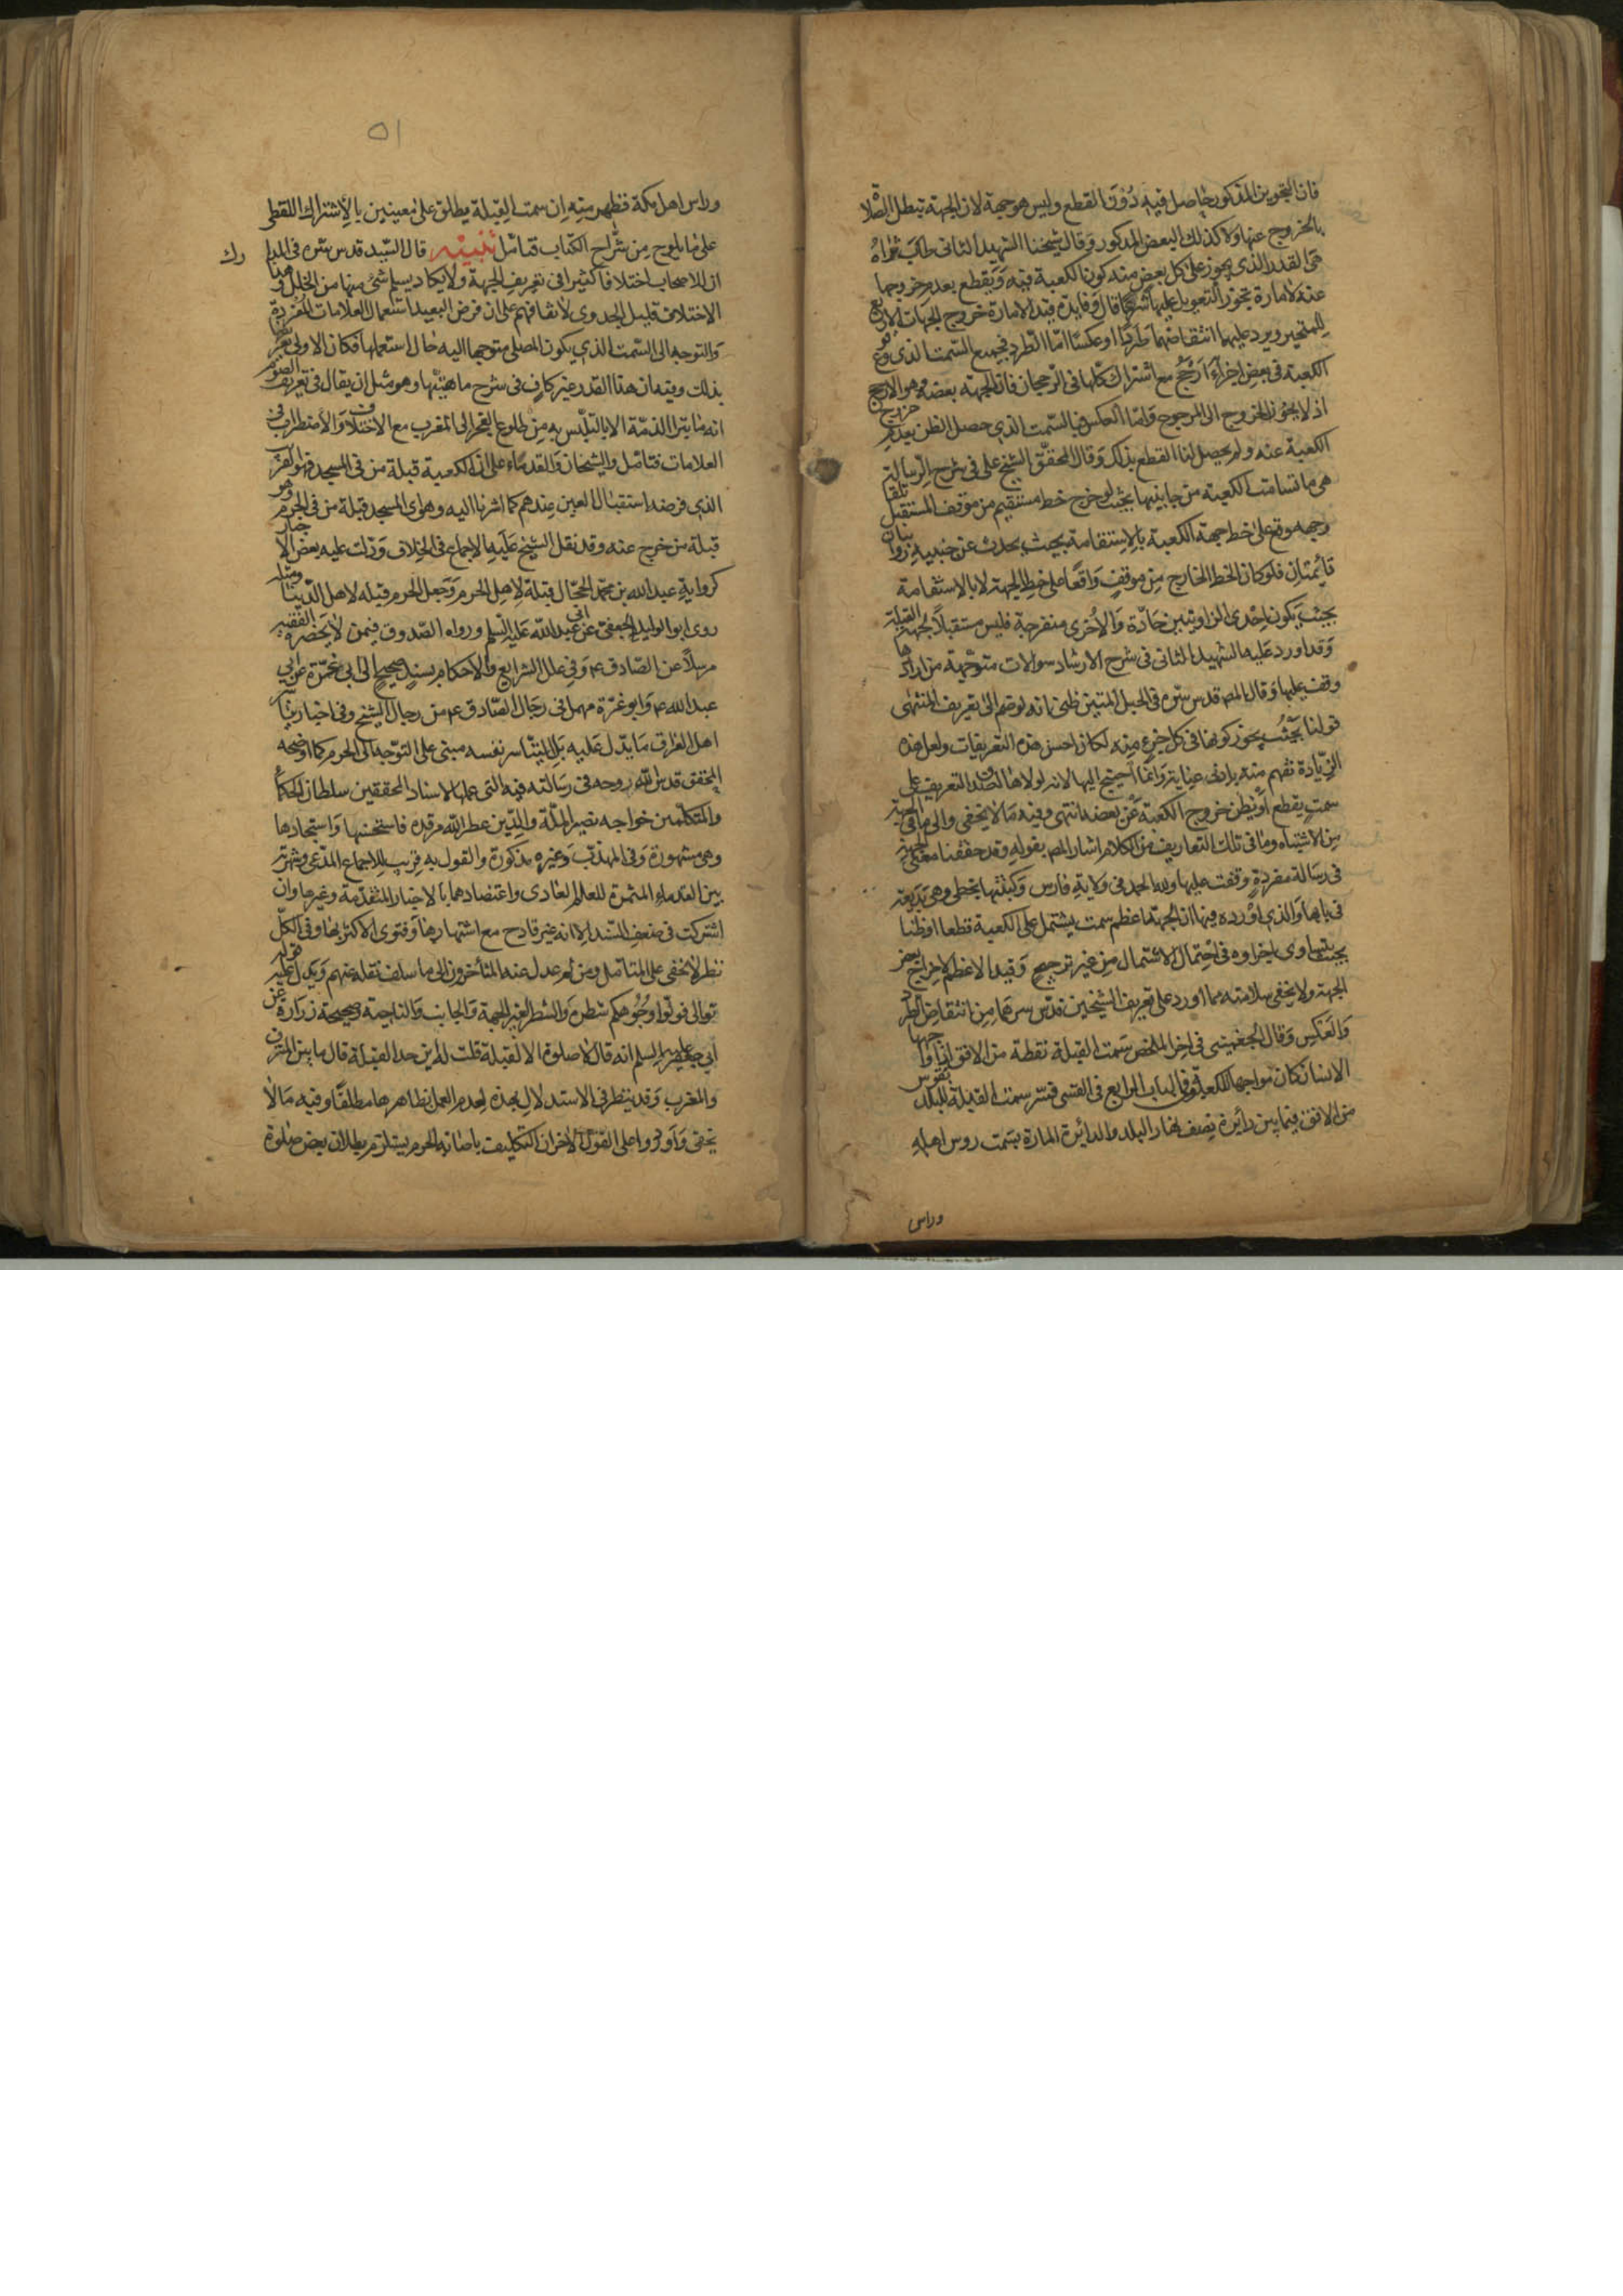 فان التجويز المذكور حاصل فيه دون القطع وليس هو جهة لان الجهة تبطل الصلاة
بالخروج عنها ولا كذلك البعض المذكور وقال شيخنا الشهيد الثاني طاب ثراه
هي القدر الذي يجوز على كل بعض منه كون الكعبة فيه ويقطع بعدم خروجها
عنه لامارة يجوز التعويل عليها شرعا قال وفايدة قيد الامارة خروج الجهات الاربع
للمتحير ويرد عليهما انتقاضهما طردا او عكسا اما الطرد فبجميع السمت الذي وقع
الكعبة في بعض اجزاءه ارجح مع اشتراك كلها في الرجحان فان الجهة بعضه وهو الارجح
اذ لا يجوز الخروج الى المرجوح واما العكس فبالسمت الذي حصل الظن بعدم خروج
الكعبة عنه ولم يحصل لنا القطع بذلك وقال المحقق الشيخ علي في شرح الرسالة
هي ما تسامت الكعبة من جانبيها بحيث لو خرج خط مستقيم من موقف المستقبل تلقاء
وجهه وقع على خط جهة الكعبة بالاستقامة بحيث يحدث عن جنبيه زاويتان
قائمتان فلو كان الخط الخارج من موقف واقعا على خط الجهة لا بالاستقامة
بحيث يكون احدى الزاويتين حادة والاخرى منفرجة فليس مستقبلا لجهة القبلة
وقد اورد عليه الشهيد الثاني في شرح الارشاد سوالات متوجهة من ارادها
وقف عليها وقال المصر قدس سره في الحبل المتين ظني انه لو ضم الى تعريف المنتهى
قولنا بحيث يجوز كونها في كل جزء منه لكان احسن هذه التعريفات ولعل هذه
الزيادة تفهم منه بادنى عناية وانما احتيج اليها لانه لولاها لصدق التعريف على
سمت يقطع او يظن خروج الكعبة عن بعضه انتهى وفيه ما لا يخفى والى ما في الجهة
من الاشتباه وما في تلك التعاريف من الكلام اشار المصر بقوله وقد حققنا معنى الجهة
في رسالة مفردة وقفت عليها ولله الحمد في ولاية فارس وكتبتها بخطي وهي بديعة
في بابها والذي اورده فيها ان الجهة اعظم سمت يشتمل على الكعبة قطعا او ظنا
بحيث يتساوى اجزاوه في احتمال الاشتمال من غير ترجيح وقيد الاعظم لاخراج بعض
الجهة ولا يخفى سلامته مما اورد على تعريف الشيخين قدس سرهما من انتقاض الطرد
والعكس وقال الجغميني في اخر الملخص سمت القبلة نقطة من الافق اذا واجهها
الانسان كان مواجها للكعبة وفي الباب الرابع في القسي فسر سمت القبلة للبلد بقوس
من الافق فيما بين دائرة نصف نهار البلد والدائرة المارة بسمت روس اهله
وراس
وراس اهل مكة فظهر منه ان سمت القبلة يطلق على معنيين بالاشتراك اللفظي
على ما يلوح من شراح الكتاب فتامل تنبيه قال السيد قدس سره في المدارك
ان للاصحاب اختلافا كثيرا في تعريف الجهة ولا يكاد يسلم شئ منها من الخلل وهذا
الاختلاف قليل الجدوى لاتفاقهم على ان فرض البعيد استعمال العلامات المقررة
والتوجه الى السمت الذي يكون المصلي متوجها اليه حال استعمالها فكان الاولى تعريفها
بذلك وفيه ان هذا القدر غير كاف في شرح ماهيتها وهو مثل ان يقال في تعريف الصوم
انه ما يبرا الذمة الا بالتلبس به من طلوع الفجر الى المغرب مع الاختلاف والاضطراب في
العلامات فتامل والشيخان والقدماء على ان الكعبة قبلة من في المسجد فهو القرب
الذي فرضه استقبال العين عندهم كما اشرنا اليه وهو اى المسجد قبلة من في الحرم وهو
قبلة من خرج عنه وقد نقل الشيخ عليه الاجماع في الخلاف ودلت عليه بعض الاخبار
كرواية عبد الله بن محمد الحجال قبلة لاهل الحرم وجعل الحرم قبلة لاهل الدنيا ومثله
روى ابو الوليد الجعفي عن ابي عبد الله عليه السلم ورواه الصدوق فيمن لا يحضره الفقيه
مرسلا عن الصادق ع وفي علل الشرايع والاحكام بسند صحيح الى ابي غمرة عن ابي
عبد الله ع وابو غرة مهمل في رجال الصادق ع من رجال الشيخ وفي اخبار تياسر
اهل العراق ما يدل عليه بل التياسر نفسه مبني على التوجه الى الحرم كما اوضحه
المحقق قدس الله روحه في رسالته فيه التي عملها لاستاد المحققين سلطان الحكماء
والمتكلمين خواجه نصير الملة والدين عطر الله مرقده فاستحسنها واستجادها
وهي مشهورة وفي المهذب وغيره مذكورة والقول به قريب للاجماع المدعى وشهرته
بين القدماء المثمرة للعلم العادي واعتضادها بالاخبار المتقدمة وغيرها وان
اشتركت في ضعف السند الا انه غير قادح مع اشتهارها وفتوى الاكثر بها وفي الكل
نظر لا يخفى على المتامل ومن ثم عدل عنه المتأخرون الى ما سلف نقله عنهم ويدل عليه قوله
تعالى فولوا وجوهكم شطره والشطر لغير الجهة والجانب والناحية وصحيحة زرارة عن
ابي جعفر عليه السلم انه قال لا صلوة الا القبلة قلت له اين حد القبلة قال ما بين المشرق
والمغرب وقد ينظر في الاستدلال بهذه لعدم العمل بظاهرها مطلقا وفيه ما لا
يخفى واوردوا على القول الاخر ان التكليف باصابة الحرم يستلزم بطلان بعض صلوة